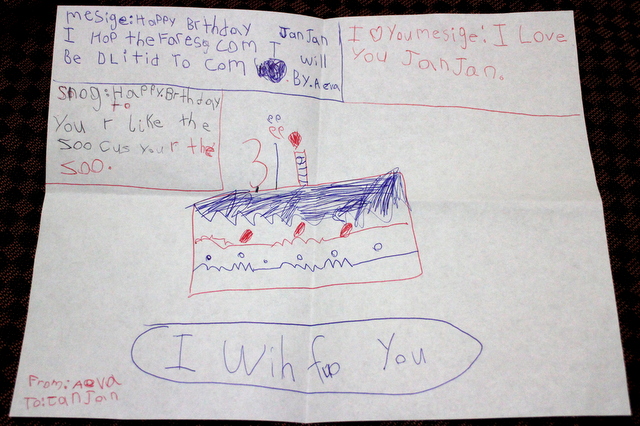 mesige: Happy Brthday JanJan
I HOP the Fareses COM I will
Be DLitid To Com BY. Aeva
I ♡ You mesige: I Love
You JanJan.
Snog: Happy Brthday
To
You r like the
Soo Cus your the
Soo.
31
I Wih for You
From: Aeva
To: JanJan